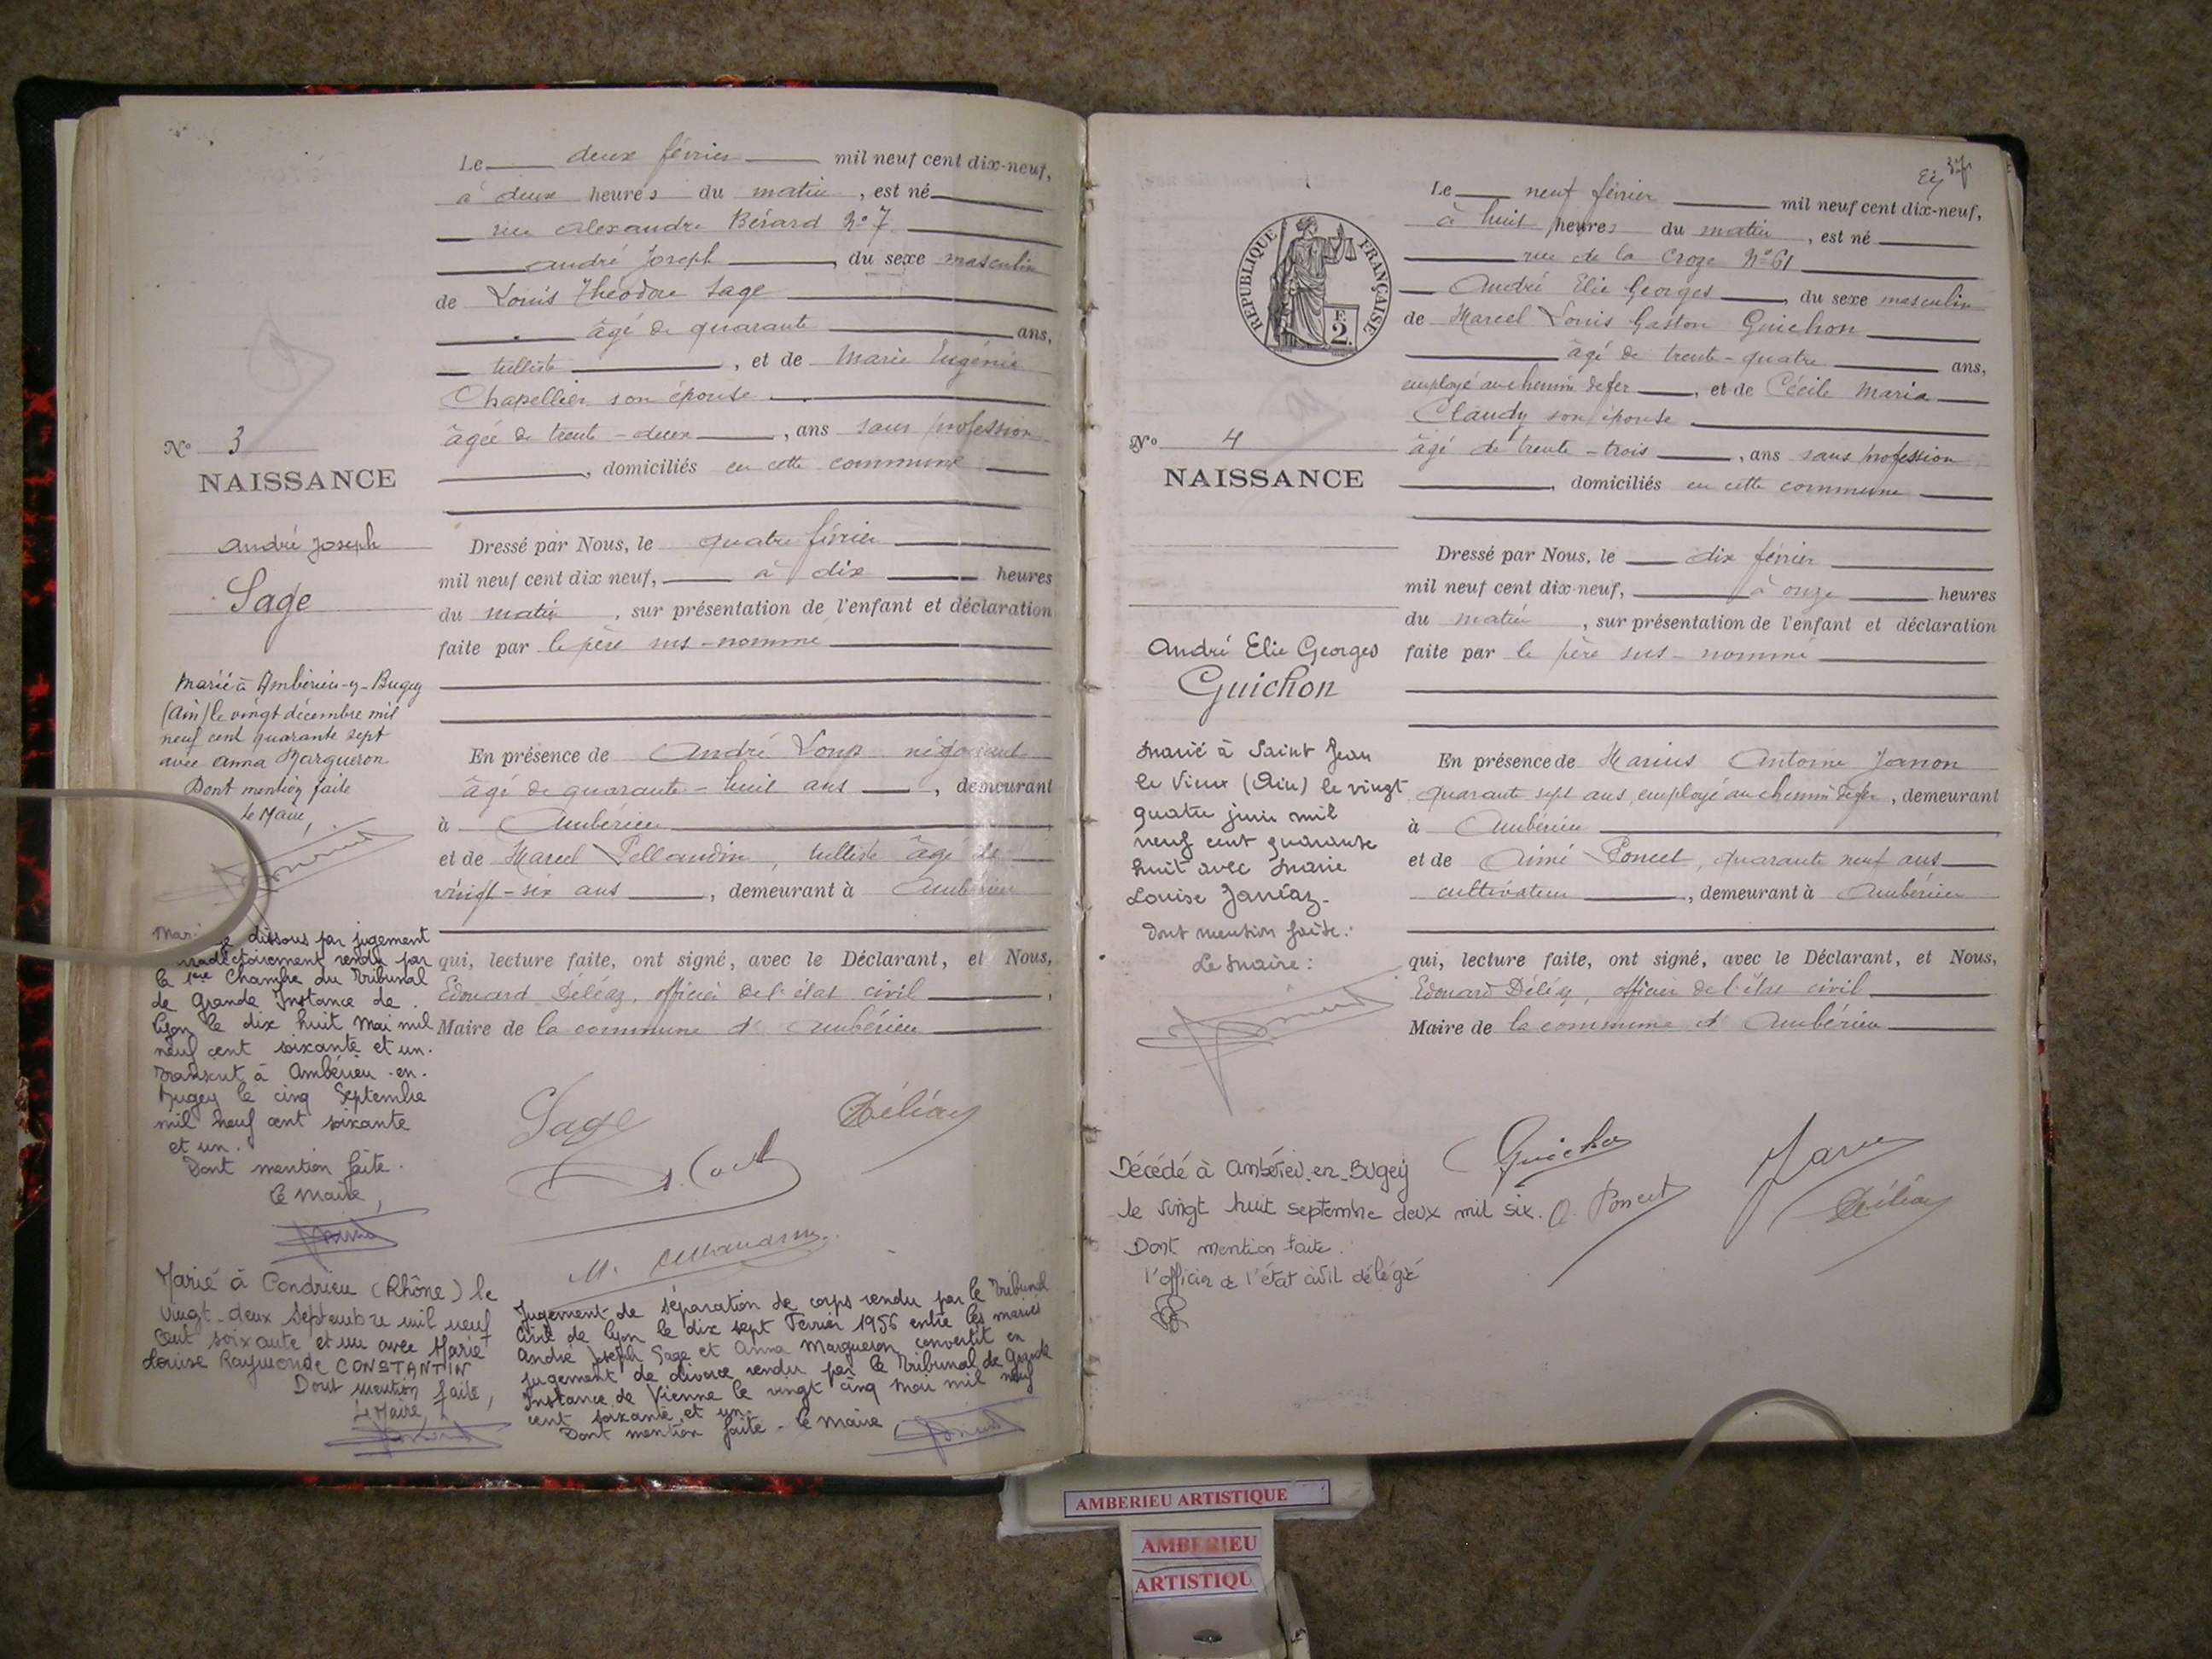 Le deux février mil neuf cent dix-neuf,
à deux heures du matin, est né
rue Alexandre Bérard No 7
André Joseph, du sexe masculin
de Louis Théodore Sage
âgé de quarante ans,
tulliste, et de Marie Eugénie
Chapellier son épouse
âgée de trente-deux, ans sans profession
, domiciliés en cette commune
No 3
NAISSANCE
André Joseph
Sage
Dressé par Nous, le quatre février
mil neuf cent dix neuf, à dix heures
du matin, sur présentation de l'enfant et déclaration
faite par le père sus-nommé
En présence de André Loup négociant
âgé de quarante-huit ans, demeurant
à Ambérieu
et de Marcel Pellaudin, tulliste âgé de
vingt-six ans, demeurant à Ambérieu
qui, lecture faite, ont signé, avec le Déclarant, et Nous,
Edouard Déléaz, officier de l'état civil,
Maire de la commune d'Ambérieu
Sage
Marié à Ambérieu-en-Bugey
(Ain) le vingt décembre mil
neuf cent quarante sept
avec Anna Margueron
Dont mention faite
Le Maire,
dissous par jugement
rendu par
la 1ère Chambre du Tribunal
de Grande Instance de
Lyon le dix huit Mai mil
neuf cent soixante et un.
Transcrit à Ambérieu-en-
Bugey le cinq Septembre
mil neuf cent soixante
et un.
Dont mention faite.
Le Maire,
Marié à Condrieu (Rhône) le
vingt-deux Septembre mil neuf
cent soixante et un avec Marie
Louise Raymonde CONSTANTIN
Dont mention faite,
Le Maire,
Jugement de séparation de corps rendu par le Tribunal
Civil de Lyon le dix sept Février 1956 entre les mariés
André Joseph Sage et Anna Margueron convertit en
jugement de divorce rendu par le Tribunal de Grande
Instance de Vienne le vingt cinq Mai mil neuf
cent soixante et un.
Dont mention faite - le maire
37
Le neuf février mil neuf cent dix-neuf,
à huit heures du matin, est né
rue de la Croze No 61
André Elie Georges, du sexe masculin
de Marcel Louis Gaston Guichon
âgé de trente-quatre ans,
employé au chemin de fer, et de Cécile Maria
Claudy son épouse
âgé de trente-trois, ans sans profession
, domiciliés en cette commune
REPUBLIQUE FRANÇAISE
F.
2.
No 4
NAISSANCE
André Elie Georges
Guichon
Dressé par Nous, le dix février
mil neuf cent dix-neuf, à onze heures
du matin, sur présentation de l'enfant et déclaration
faite par le père sus-nommé
En présence de Marius Antoine
quarante sept ans, employé au chemin de fer, demeurant
à Ambérieu
et de Aimé Poncet, quarante neuf ans
cultivateur, demeurant à Ambérieu
qui, lecture faite, ont signé, avec le Déclarant, et Nous,
Edouard Déléaz, officier de l'état civil
Maire de la commune d'Ambérieu
Marié à Saint Jean
le Vieux (Ain) le vingt
quatre juin mil
neuf cent quarante
huit avec Marie
Louise Janéaz.
Dont mention faite.
Le Maire:
Guichon
A. Poncet
Décédé à Ambérieu-en-Bugey
le vingt huit septembre deux mil six.
Dont mention faite.
l'officier de l'état civil délégué
AMBERIEU ARTISTIQUE
AMBERIEU
ARTISTIQU